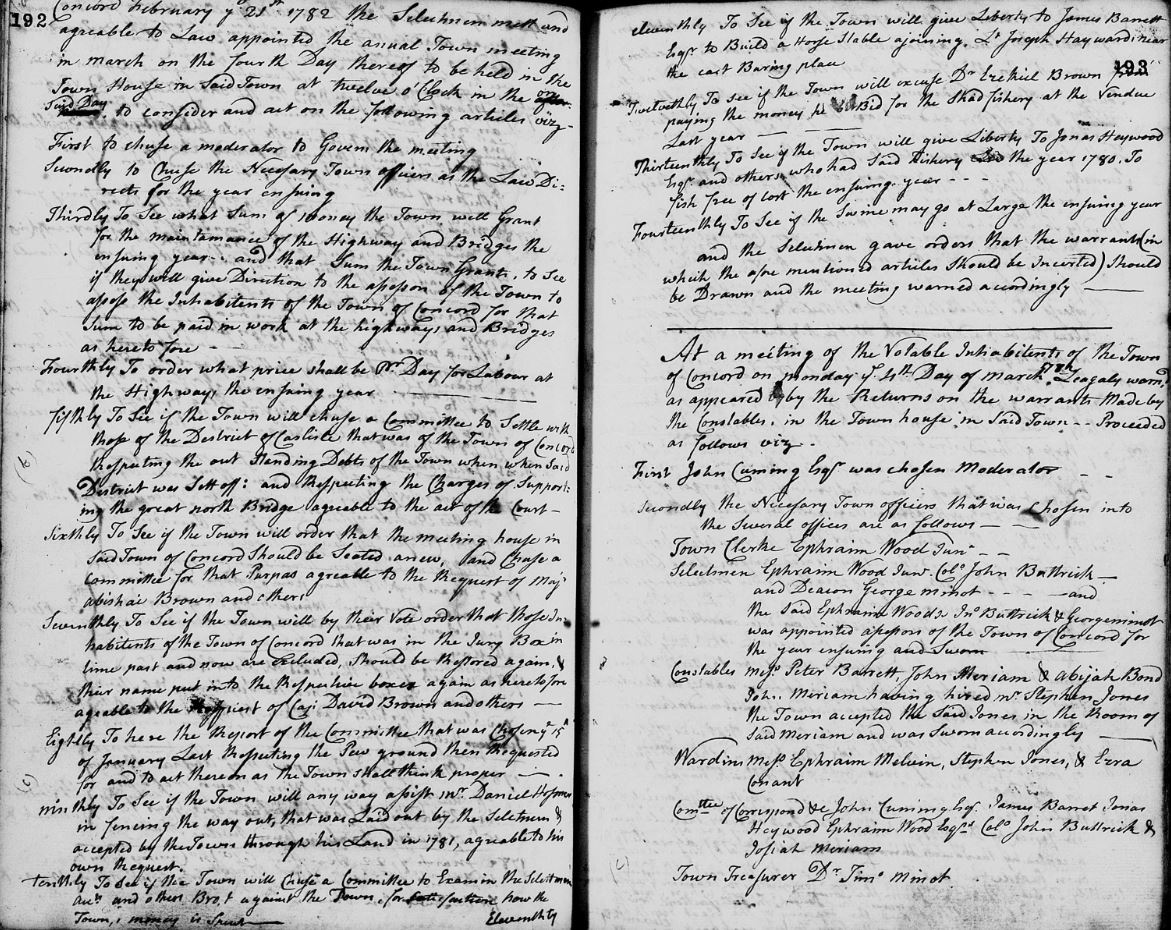 192
Concord February ye 21st 1782 the Selectmen mett and
agreable to Law appointed the anual Town meeting
in march on the fourth Day thereof to be held in the
Town House in Said Town at twelve o Clock in the
Said Day to consider and act on the following articles viz
First to chuse a moderator to Govern the meeting
Secondly to Chuse the Necesary Town officers as the Law Di=
rects for the year ensuing
Thirdly To See what Sum of money the Town will Grant
for the maintamance of the Highway and Bridges the
ensuing year - and that Sum the Town Grants, to See
if they will give Direction to the assessors of the Town to
assess the Inhabitents of the Town of Concord for that
Sum to be paid in work at the highways and Bridges
as hereto fore
Fourthly To order what price shall be Pr Day for Labour at
the Highways the ensuing year
fifthly To See if the Town will chuse a Committee to Settle with
those of the Destrict of Carlisle that was of the Town of Concord
Respecting the out Standing Debts of the Town when when Said
District was Sett off: and Respecting the Charges of Support:
ing the great north Bridge agreable to the act of the Court -
Sixthly To See if the Town will order that the meeting house in
Said Town of Concord Should be Seated anew, and Chuse a
Committee for that Purpas agreable to the Request of Majr
abishai Brown and others
Seventhly To See if the Town will by their Vote order that those In
habitents of the Town of Concord that was in the Jury Box in
time past and now are Excluded, Should be Restored again, &
their name put into the Respective boxes again as heretofore
agreable to the Request of Cap: David Brown and others -
Eightly To here the Report of the Committee that was Chosen ye 15th
of January Last Respecting the Pew ground then Requested
for and to act thereon as the Town Shall think proper -
ninthly To See if the Town will any way assist mr. Daniel Hosmer
in fencing the way out, that was Laid out by the Selectmen &
accepted by the Town through his Land in 1781, agreable to his
own Request.
tenthly To See if the Town will Chuse a Committee to Examin the Selectmen
and others Bro,t against the Town, for how the
Town,s money is Spent
Eleventhly
193
eleventhly To See if the Town will give Liberty to James Barrett
Esqr to Build a Horse Stable ajoining Lt Joseph Haywards near
the east Buring place
Twelvethly To see if the Town will excuse Dr Ezekiel Brown
paying the money he Bid for the Shad fishery at the Vendue
Last year
Thirteenthly To See if the Town will give Liberty To Jonas Heywood
Esqr and others, who had Said Fishery the year 1780. To
fish free of Cost the ensuing year - - -
Fourteenthly To See if the Swine may go at Large the ensuing year
and the Selectmen gave orders that the warrants (in
which the afore mentioned articles Should be Incerted) Should
be Drawn and the meeting warned accordingly
At a meeting of the Votable Inhabitents of the Town
of Concord on monday ye 4th Day of march 1782 Leagaly warnd
as appeared by the Returns on the warrants Made by
the Constables, in the Town house in Said Town - - Proceeded
as follows viz.
First John Cuming Esqr was chosen Moderator
Secondly the Necesary Town officers that was Chosen into
the Several offices are as follows -
Town Clerke Ephraim Wood Junr - -
Selectmen Ephraim Wood Junr Colo John Buttrick -
and Deacon George minot - - - - and
the Said Ephraim Wood Jr Jno Buttrick & George minot
was appointed assessors of the Town of Concord for
the year ensuing and Sworn
Constables mess. Peter Barrett, John Meriam & Abijah Bond
Joh. Meriam having hired mr Stephen Jones
the Town accepted the Said Jones in the Room of
Said Meriam and was Sworn accordingly
Wardins mess Ephraim Melvin, Stephen Jones, & Ezra
Conant
Comttee of Correspond &c John Cuming Esqr James Barret Jonas
Heywood Ephraim Wood Esqrs Colo John Buttrick &
Josiah Meriam
Town Treasurer Dr Timo Minot